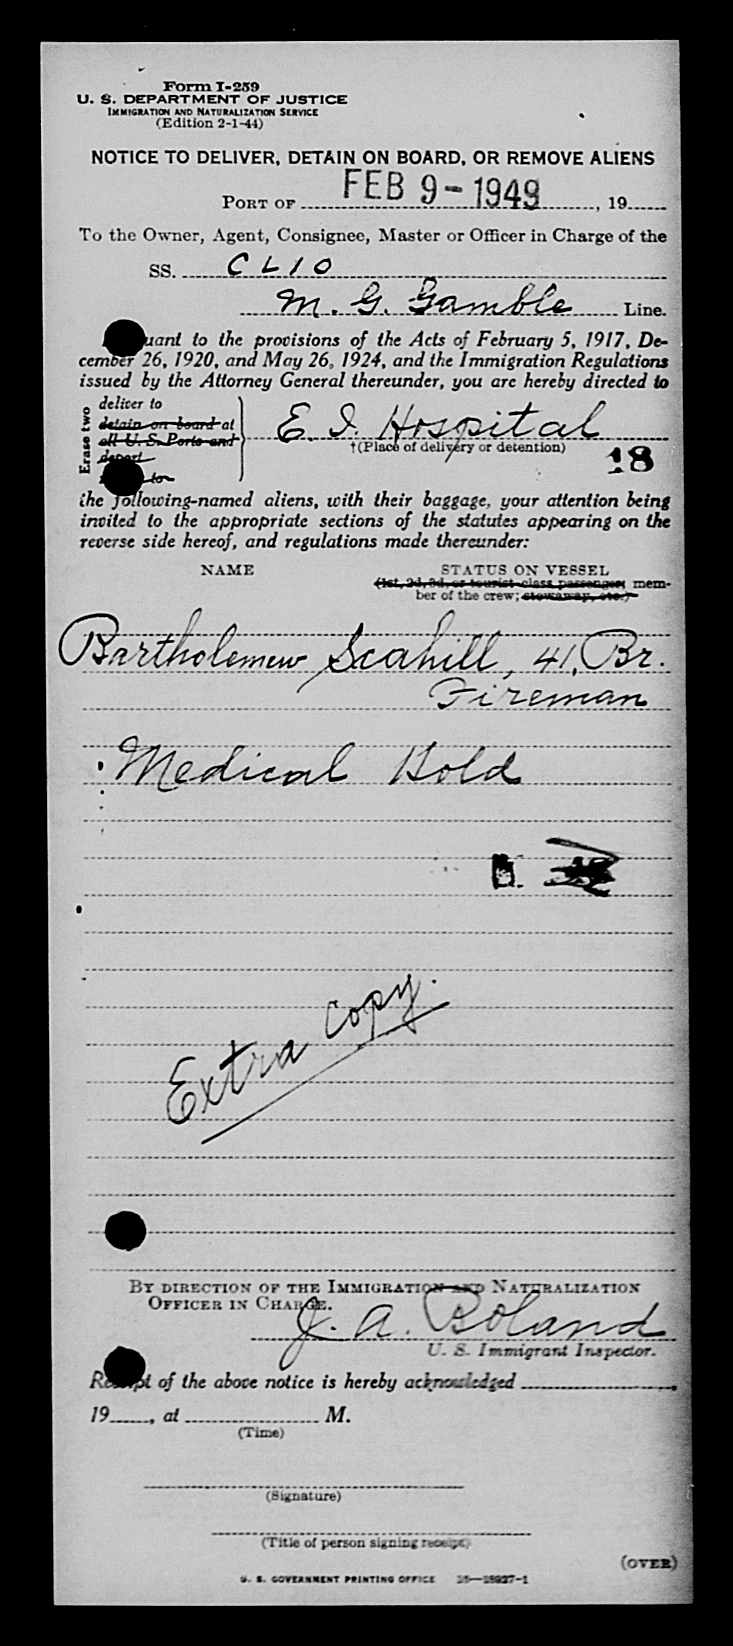 Form I-259
U. S. DEPARTMENT OF JUSTICE
IMMIGRATION AND NATURALIZATION SERVICE
(Edition 2-1-44)
NOTICE TO DELIVER, DETAIN ON BOARD, OR REMOVE ALIENS
PORT OF FEB 9-1949, 19
To the Owner, Agent, Consignee, Master or Officer in Charge of the
SS. CLIO
M. G. Gamble Line.
uant to the provisions of the Acts of February 5, 1917, De-
cember 26, 1920, and May 26, 1924, and the Immigration Regulations
issued by the Attorney General thereunder, you are hereby directed to
Erase two
deliver to
detain on board at
all U. S. Ports and
depart
to
E. I. Hospital
†(Place of delivery or detention)
18
the following-named aliens, with their baggage, your attention being
invited to the appropriate sections of the statutes appearing on the
reverse side hereof, and regulations made thereunder:
NAME STATUS ON VESSEL
(1st, 2d, 3d, or tourist class passenger; mem-
ber of the crew; stowaway, etc.)
Bartholemew Scahill, 41, Br.
Fireman
Medical Hold
Extra Copy.
BY DIRECTION OF THE IMMIGRATION AND NATURALIZATION
OFFICER IN CHARGE.
J. A. Boland
U. S. Immigrant Inspector.
Receipt of the above notice is hereby acknowledged
19, at M.
(Time)
(Signature)
(Title of person signing receipt)
(OVER)
U. S. GOVERNMENT PRINTING OFFICE 16—18927-1